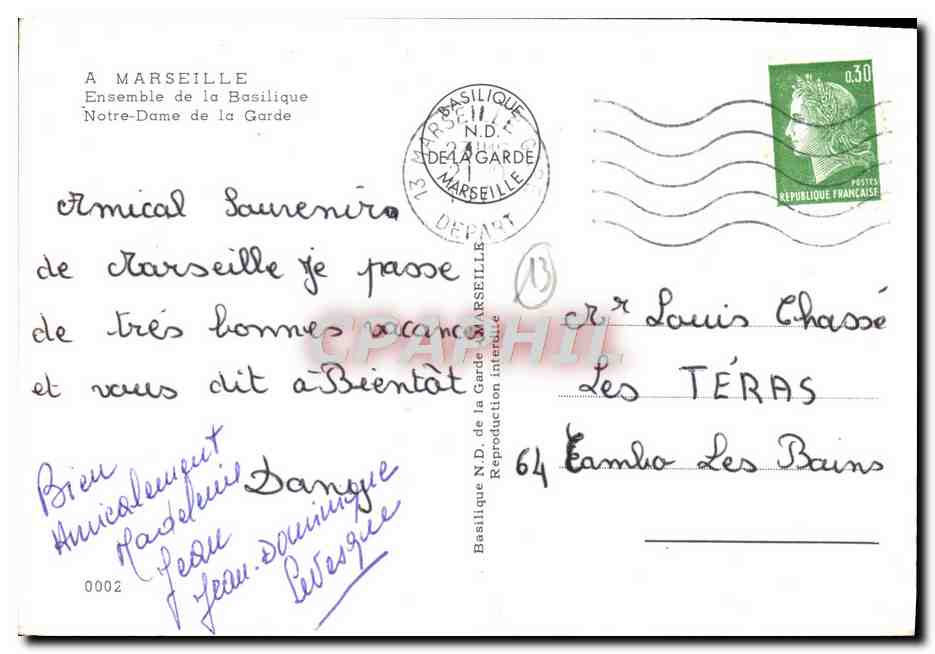 A MARSEILLE
Ensemble de la Basilique
Notre-Dame de la Garde
BASILIQUE
N.D.
DE LA GARDE
MARSEILLE
13 MARSEILLE
DEPART
0,30
POSTES
REPUBLIQUE FRANÇAISE
Amical Souvenirs
de Marseille je passe
de trés bonnes vacances
et vous dit à Bientôt
Dany
Bien
Amicalement
Madeleine
Jean
Jean-Dominique
Levesque
0002
Basilique N.D. de la Garde MARSEILLE
Reproduction interdite
13
CPAPHIL
Mr Louis Chassé
Les TÉRAS
64 Cambo Les Bains